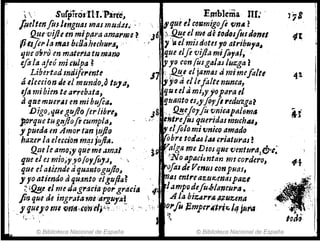 Suspiros III. Parte,
Suelten sus lenguas mas mudas.
Que viste en mi para amarme?
si eser la mas bella hechura,
que obrò en materia tu mano
esa la afeò mi culpa?
Libertad indiferente
à eleccion de el mundo, ò tuya,
esa mi bien te arrebata,
à que mueras en mi busca.
Digo, que gusto ser libre,
porque tu gusto se cumpla,
y pueda en Amor tan justo
hazer la eleccion mas justa.
Que le amo, y que me ama?
que el es mio, y yo soy suya,
que el atiende à quanto gusto,
y yo atiendo à quanto el gusta?
Que el me da gracia por gracia
sin que de ingrata me arguya
que yo me
Emblema III.
178
y que el conmigo se vna?
Que el me dè todos sus dones
y a el mis dotes yo atribuya,
que el se vista mi sayal,
y yo con sus galas luzga?
Que el jamas à mi me falte
y yo à el le falte nunca,
que el à mi, y yo para el
quanto es, y soy se reduzga?
Que soy su vnica paloma
entre sus queridas muchas,
y el solo mi vnico amado
sobre todas las criaturas?
Valga me Dios que ventura, &c.
No apacientan mis cordero,
rosas de Venus con puas,
mas entre azuzenas paze
el ampo de su blancura.
A la bizarra azuzena
por su Emperatriz la jura
todo
© Biblioteca Nacional de España
© Biblioteca Nacional de España